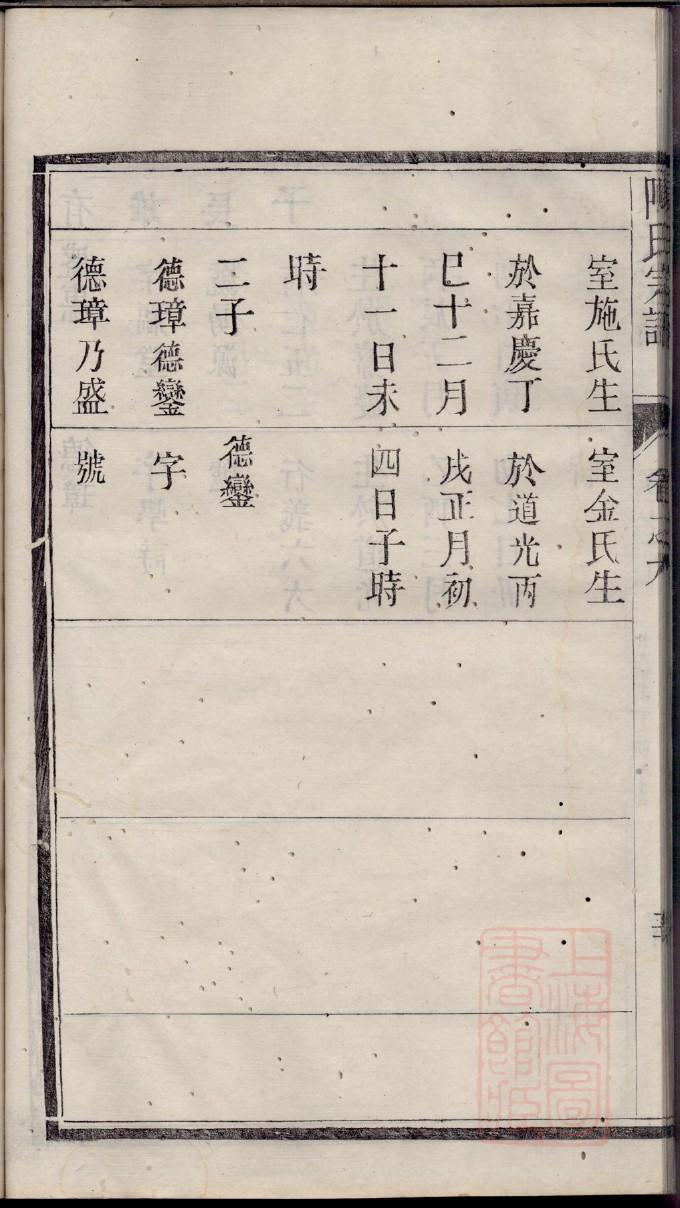 氏宗譜
卷之九
室施氏生
於嘉慶丁
巳十二月
十一日未
時
二子
德璋德鑾
德璋乃盛
室金氏生
於道光丙
戌正月初
四日子時
德鑾
字
號
上海圖
書館藏